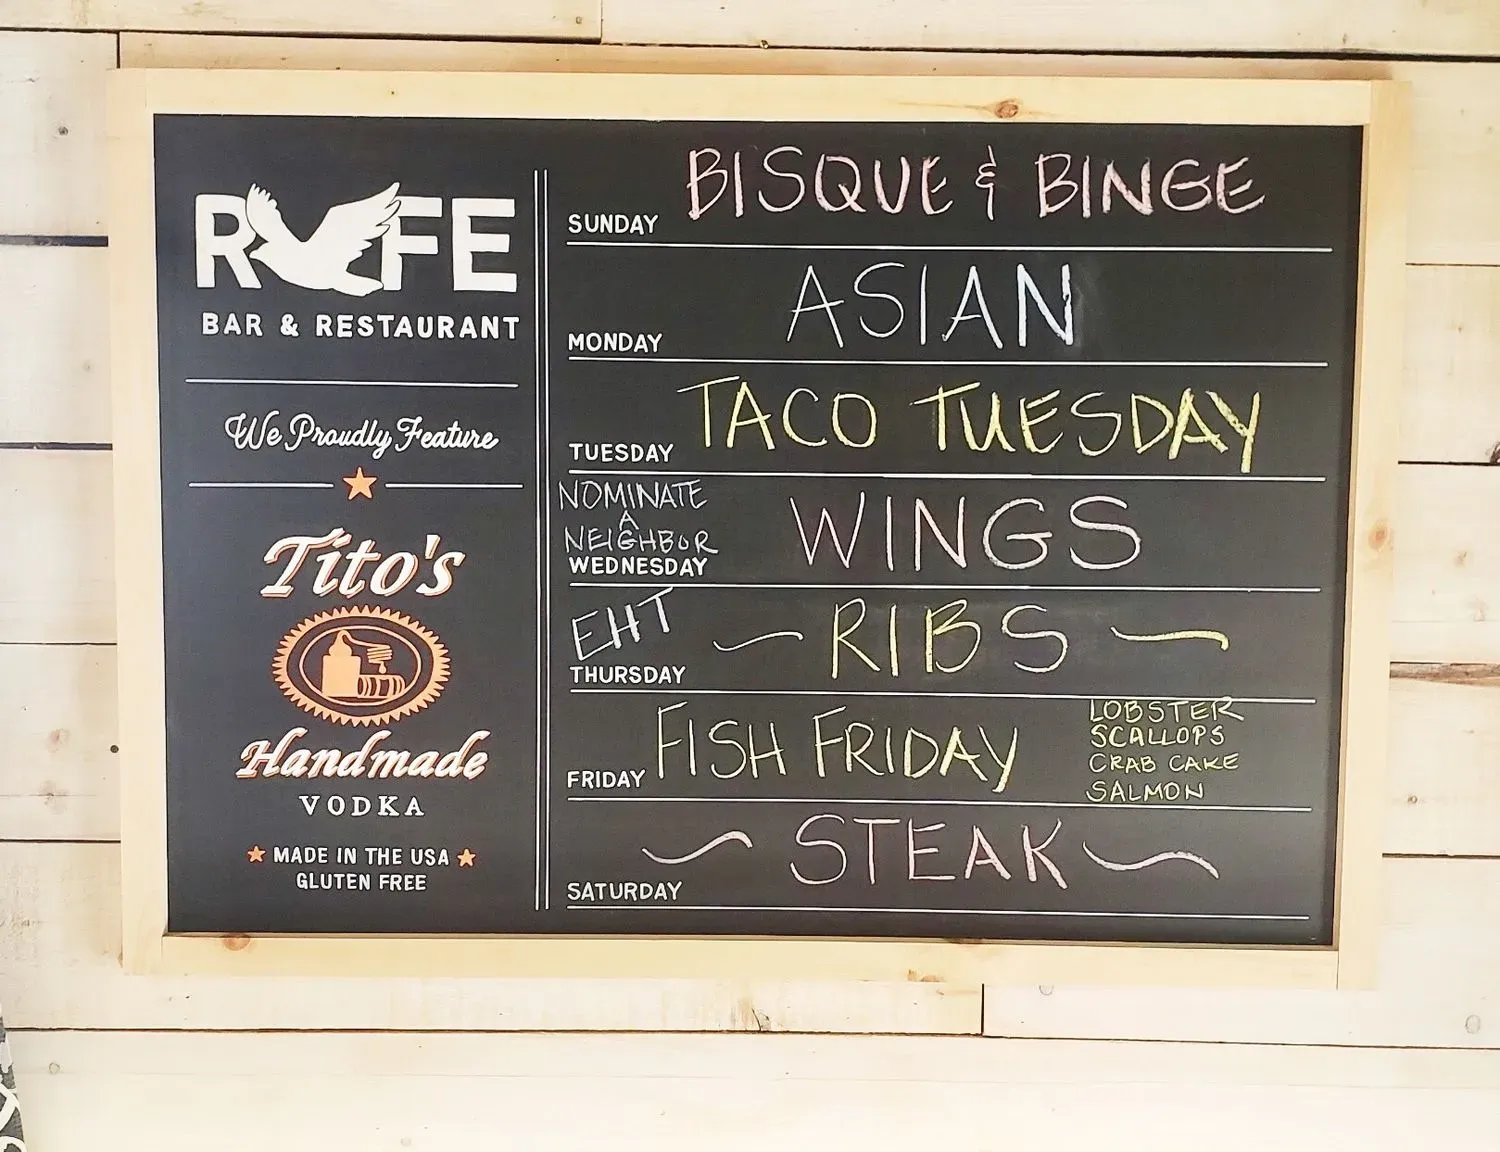 R FE
BAR & RESTAURANT
We Proudly Feature
Tito's
Handmade
VODKA
MADE IN THE USA
GLUTEN FREE
SUNDAY BISQUE & BINGE
MONDAY ASIAN
TUESDAY TACO TUESDAY
NOMINATE
A
NEIGHBOR
WEDNESDAY WINGS
EHT
THURSDAY RIBS
FRIDAY FISH FRIDAY
LOBSTER
SCALLOPS
CRAB CAKE
SALMON
SATURDAY STEAK